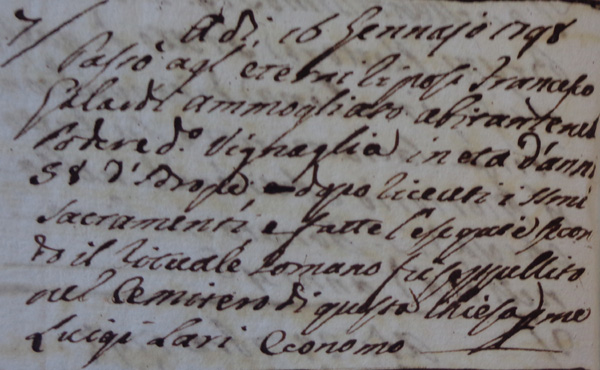 7/ Adi, 16 Gennajo 1798
Passò agl' eterni riposi Francesco
ammogliato abitante nel
Podere do Vignaglia in età d'anni
58 d'Idrope dopo riceuti i SSmi
Sacramenti e fatte l'esequie secon
do il rituale Romano fu seppullito
nel Cemitero di questa Chiesa p me
Luigi Lari Economo